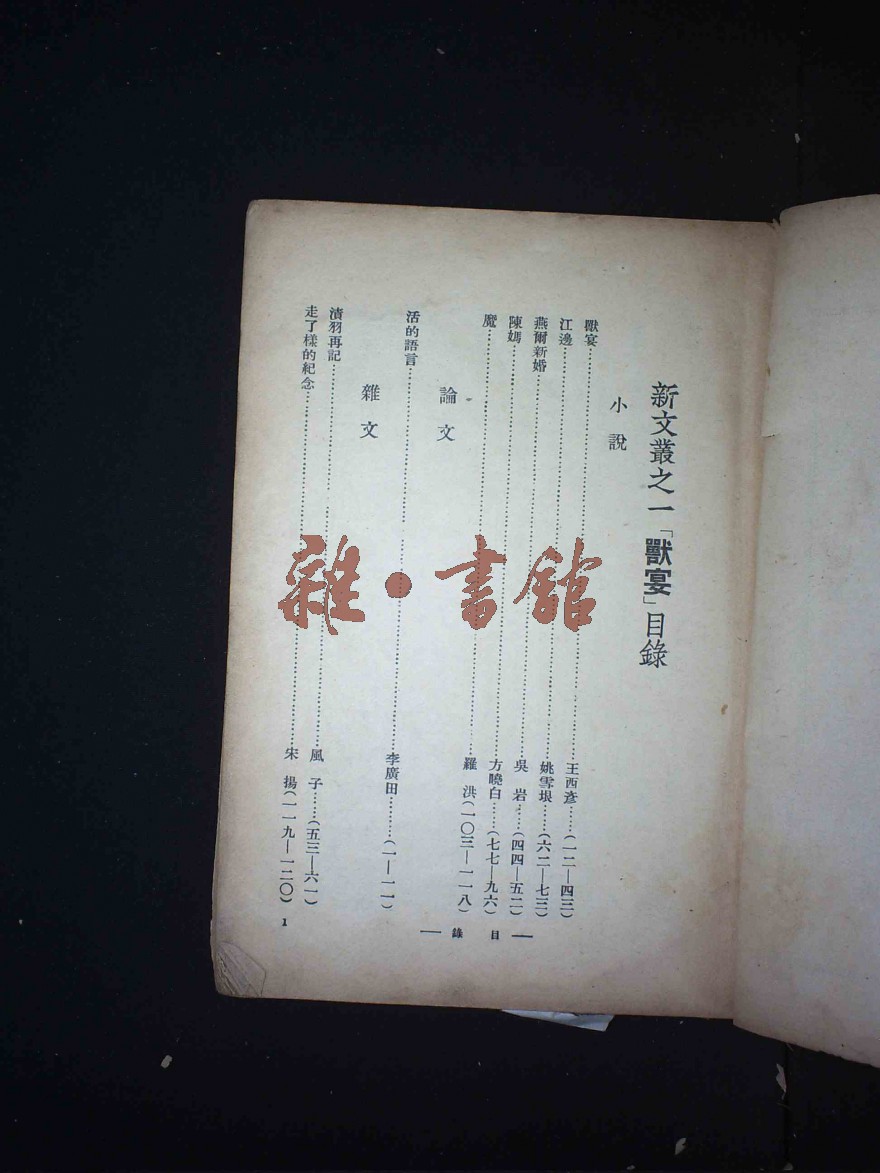 新文叢之一「獸宴」目錄
小說
獸宴……王西彥……(一二—四三)
江邊……姚雪垠……(六二—七三)
燕爾新婚……吳岩……(四四—五二)
陳媽……方曉白……(七七—九六)
魔……羅洪(一〇三—一一八)
論文
活的語言……李廣田……(一—一一)
雜文
漬羽再記……風子……(五三—六一)
走了樣的紀念……宋揚(一一九—一二〇)
—目錄—
1
雜·書館